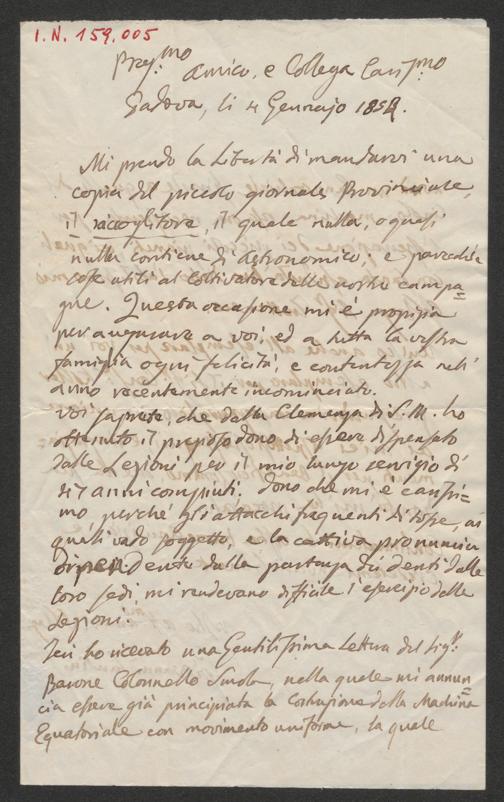 I.N. 159.005
Preg.mo Amico, e Collega Caris.mo
Padova, li 4 Gennajo 1852.
Mi prendo la libertà di mandarvi una
copia del piccolo giornale Provinciale,
il raccoglitore, il quale nulla, o quasi
nulla contiene di Astronomico, e parecchie
cose utili al Coltivatore delle nostre campa=
gne. Questa occasione mi è propizia
per augurare a voi, ed a tutta la vostra
famiglia ogni felicità, e contentezza nell'
anno recentemente incominciato.
Voi saprete, che dalla Clemenza di S. M. ho
ottenuto il prezioso dono di essere dispensato
dalle Lezioni per il mio lungo servigio di
anni compiuti. dono che mi è carissi=
mo perché gli attacchi frequenti di tosse, ai
quali vado soggetto, e la cattiva pronuncia
dipendente dalla partenza dei denti dalle
loro sedi mi rendevano difficile l'esercizio delle
Lezioni.
Jeri ho ricevuto una Gentilissima Lettera del Sig.r
Barone Colonnello, nella quale mi annun=
cia essere già principiata la Costruzione della Machina
Equatoriale con movimento uniforme, la quale